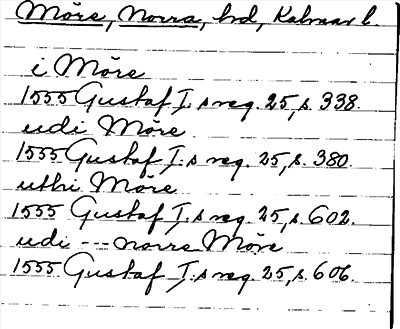 Möre, Norra, hd, Kalmar l.
i Möre
1555 Gustaf I:s reg. 25, s. 338.
udi Möre
1555 Gustaf I:s reg. 25, s. 380.
uthi Möre
1555 Gustaf I:s reg. 25, s. 602.
udi --- norre Möre
1555 Gustaf I:s reg. 25, s. 606.